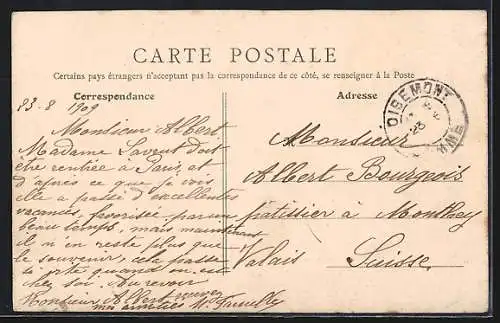 CARTE POSTALE
Certains pays étrangers n'acceptant pas la correspondance de ce côté, se renseigner à la Poste
Correspondance
23-8 1909
Monsieur Albert
Madame Laurent doit
être rentrée à Paris, et
d'après ce que je vois
elle a passé d'excellentes
vacances, favorisée par un
beau temps, mais maintenant
il n'en reste plus que
le souvenir, cela passe
si vite quand on est
chez soi. Au revoir
Monsieur Albert recevez
mes amitiés
Adresse
Monsieur
Albert Bourgeois
pâtissier à Monthey
Valais Suisse
OISEMONT
23
SOMME